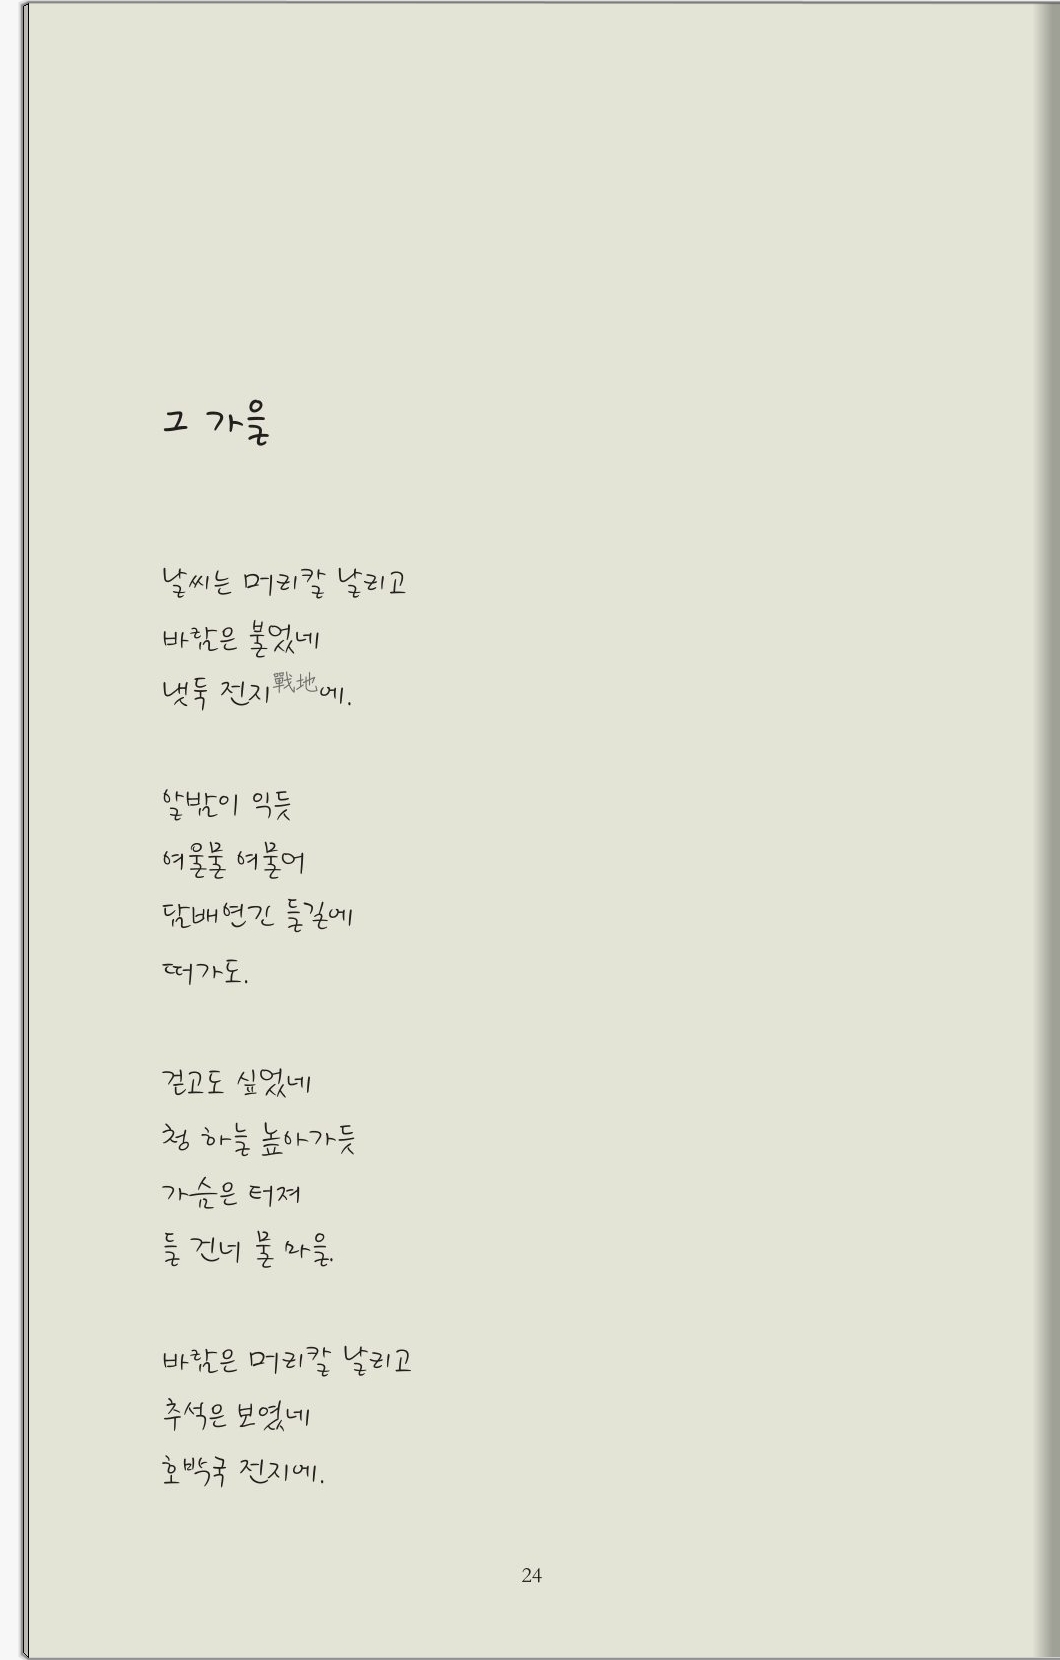 그 가을
날씨는 머리칼 날리고
바람은 불었네
냇둑 전지戰地에.
알밤이 익듯
여울물 여물어
담배연긴 들길에
떠가도.
걷고도 싶었네
청 하늘 높아가듯
가슴은 터져
들 건너 물 마을.
바람은 머리칼 날리고
추석은 보였네
호박국 전지에.
24